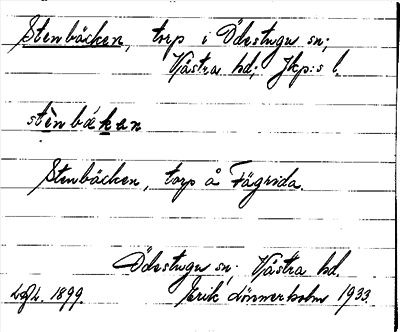 Stenbäcken, torp i Ödestugu sn;
Västra hd; Jkp:s l.
stènbákan
Stenbäcken, torp å Fägrida.
Ödestugu sn; Västra hd.
1899. Erik Lönnerholm 1933.